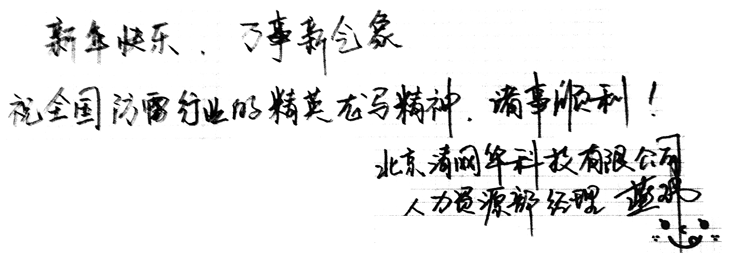 新年快乐、万事新气象
祝全国防雷行业的精英龙马精神、诸事顺利！
北京清网华科技有限公司
人力资源部经理